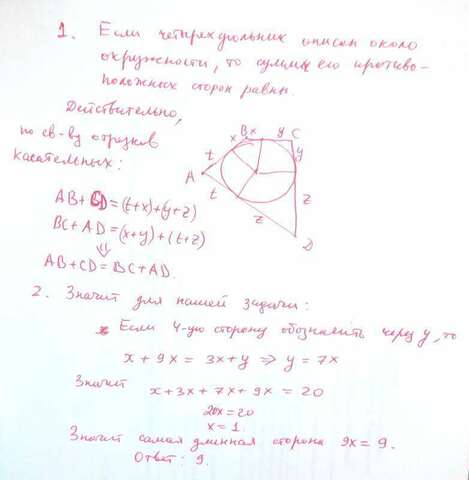 1. Если четырехугольник описан около
окружности, то суммы его противо-
положных сторон равны.
Действительно,
по св-ву отрезков
касательных:
A
B
C
D
t
x
x
y
y
z
z
t
AB + CD = (t+x)+(y+z)
BC + AD = (x+y)+(t+z)
⇓
AB+CD = BC+AD.
2. Значит для нашей задачи:
Если 4-ую сторону обозначить через y, то
x + 9x = 3x+y ⇒ y = 7x
Значит x+3x+7x+9x = 20
20x=20
x=1.
Значит самая длинная сторона 9x=9.
Ответ: 9.